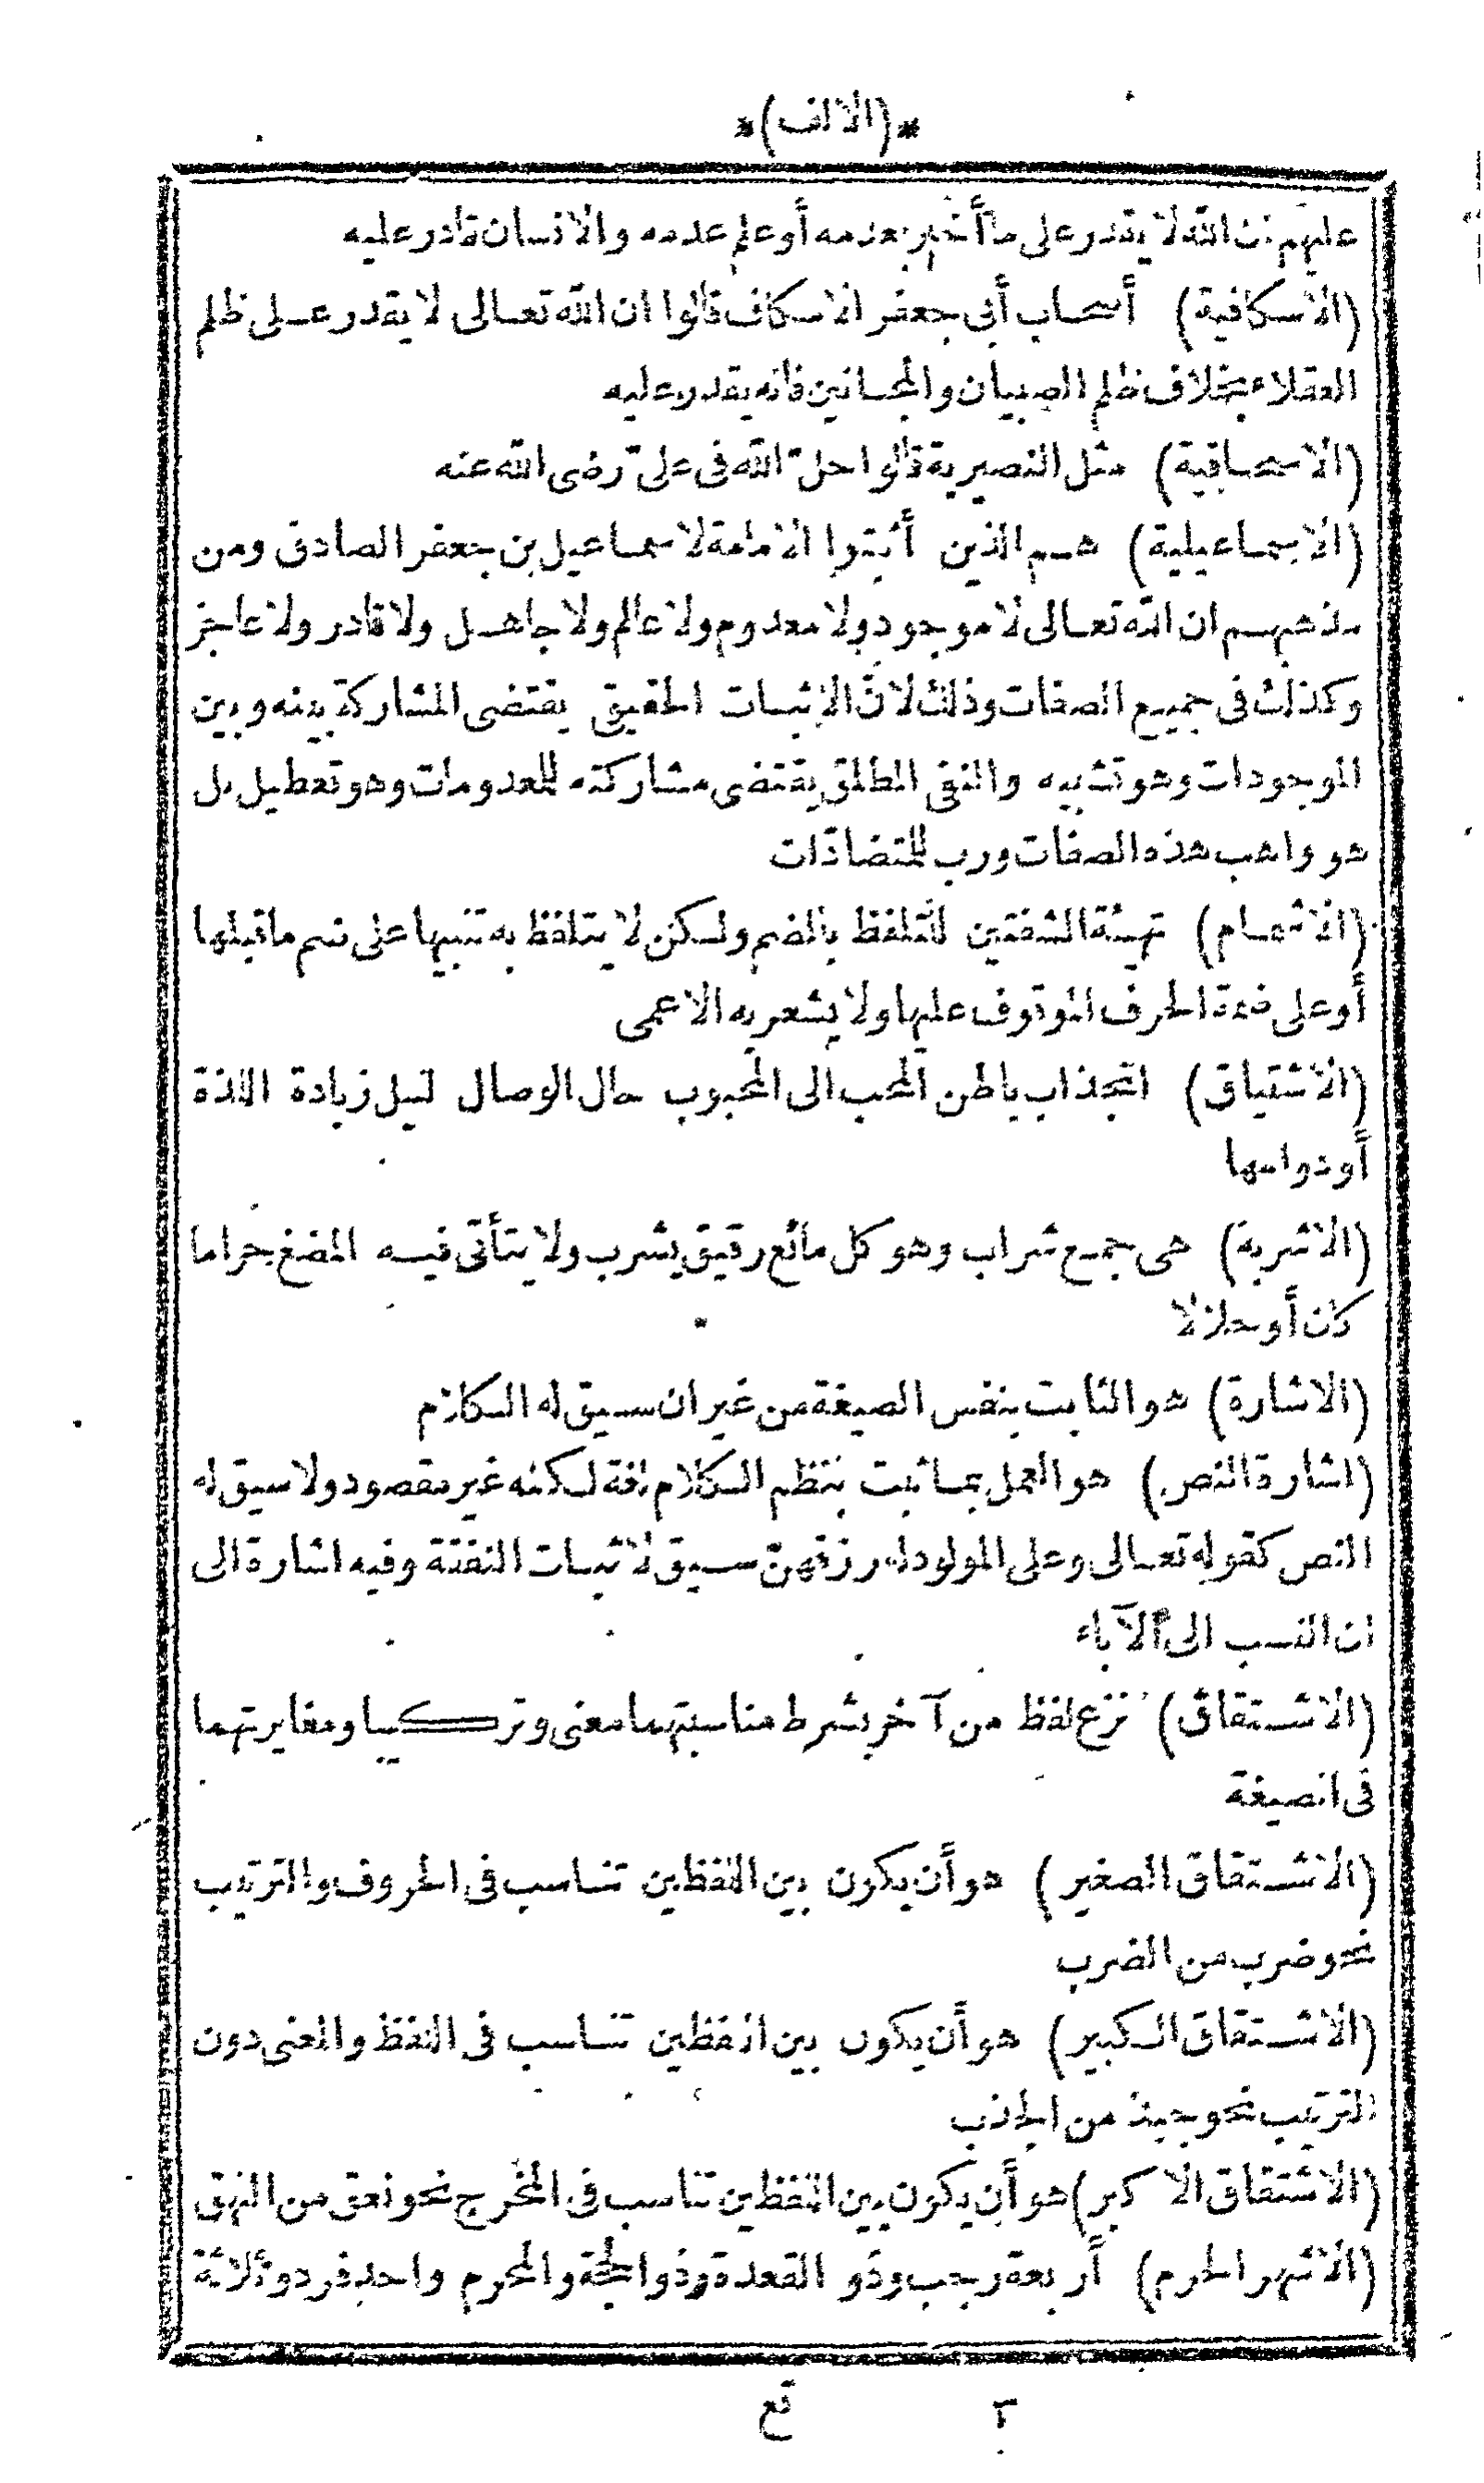 *(الالف)*
عليهم ان الله لا يقدر على ما أخبر بعدمه أو علم عدمه والانسان قادر عليه
(الاسكافية) أصحاب أبى جعفر الاسكاف قالوا ان الله تعالى لا يقدر على ظلم
العقلاء بخلاف ظلم الصبيان والمجانين فانه يقدر عليه
(الاسحاقية) مثل النصيرية قالوا حلّ الله فى علىّ رضى الله عنه
(الاسماعيلية) هم الذين أثبتوا الامامة لاسماعيل بن جعفر الصادق ومن
مذهبهم ان الله تعالى لا موجود ولا معدوم ولا عالم ولا جاهل ولا قادر ولا عاجز
وكذلك فى جميع الصفات وذلك لانّ الاثبات الحقيقى يقتضى المشاركة بينه وبين
الموجودات وهو تشبيه والنفى المطلق يقتضى مشاركته للمعدومات وهو تعطيل بل
هو واهب هذه الصفات ورب للمتضادّات
(الاشمام) تهيئة الشفتين للتلفظ بالضم ولكن لا يتلفظ به تنبيها على ضم ما قبلها
أو على ضمة الحرف الموقوف عليها ولا يشعر به الاعمى
(الاشتياق) انجذاب باطن المحب الى المحبوب حال الوصال لنيل زيادة اللذة
أو دوامها
(الاشربة) هى جمع شراب وهو كل مائع رقيق يشرب ولا يتأتى فيه المضغ حراما
كان أو حلالا
(الاشارة) هو الثابت بنفس الصيغة من غير ان سيق له الكلام
(اشارة النص) هو العمل بما ثبت بنظم الكلام لغة لكنه غير مقصود ولا سيق له
النص كقوله تعالى وعلى المولود له رزقهنّ سيق لاثبات النفقة وفيه اشارة الى
ان النسب الى الآباء
(الاشتقاق) نزع لفظ من آخر بشرط مناسبتهما معنى وتركيبا ومغايرتهما
فى الصيغة
(الاشتقاق الصغير) هو أن يكون بين اللفظين تناسب فى الحروف والترتيب
نحو ضرب من الضرب
(الاشتقاق الكبير) هو أن يكون بين اللفظين تناسب فى اللفظ والمعنى دون
الترتيب نحو جبذ من الجذب
(الاشتقاق الاكبر) هو أن يكون بين اللفظين تناسب فى المخرج نحو نعق من النهق
(الاشهر الحرم) أربعة رجب وذو القعدة وذو الحجة والمحرم واحد فرد وثلاثة
٣ تع